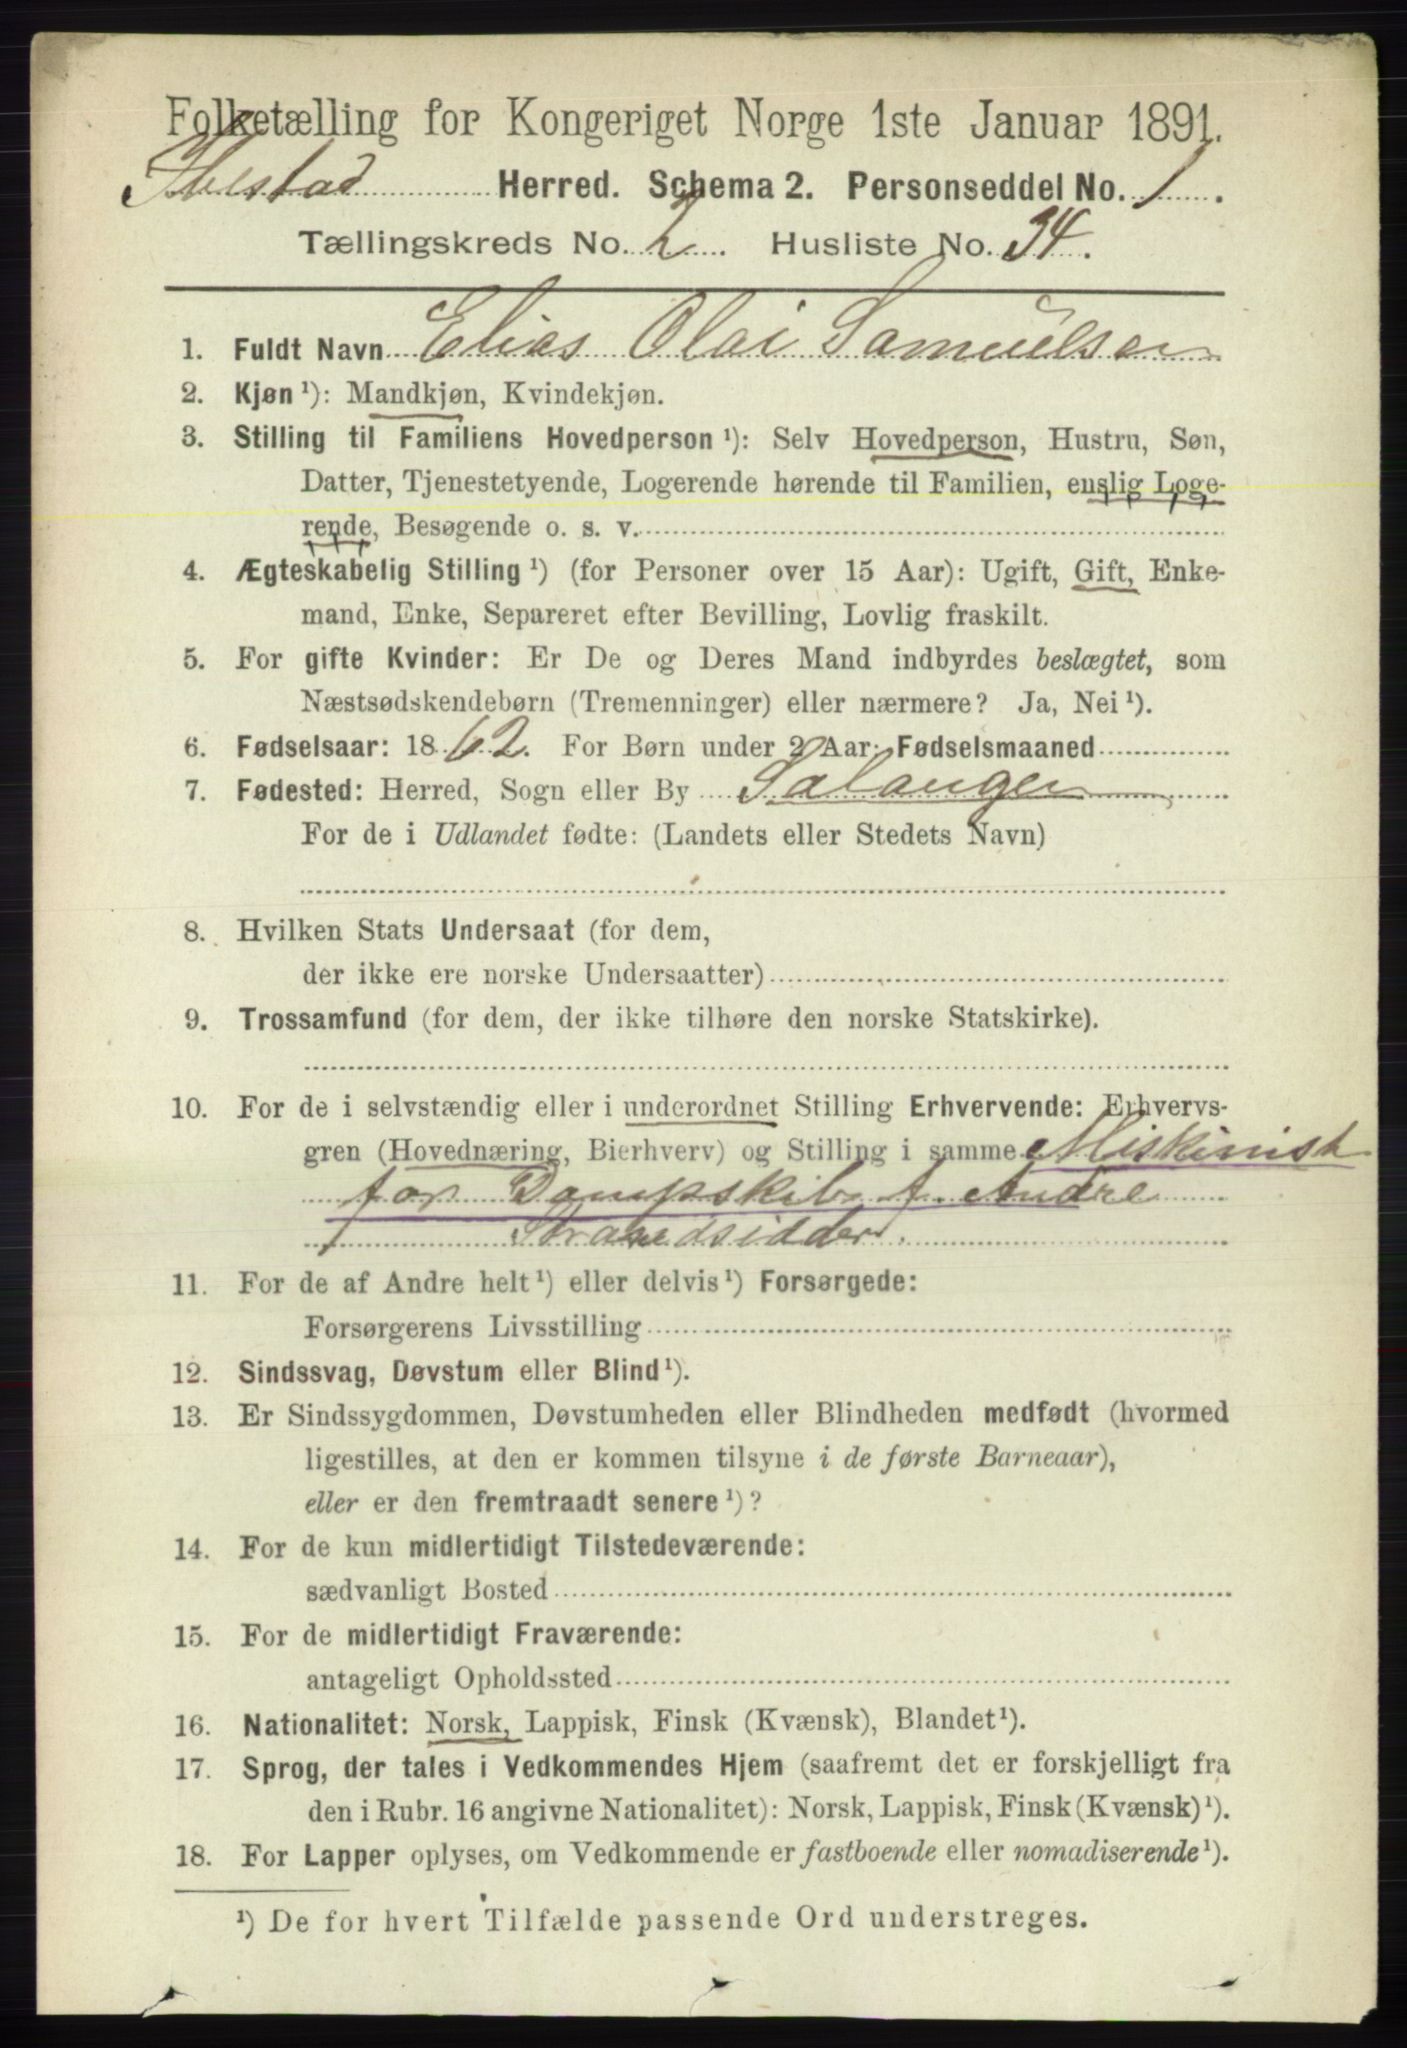 Folketælling for Kongeriget Norge 1ste Januar 1891.
Ibestad Herred. Schema 2. Personseddel No. 1.
Tællingskreds No. 2. Husliste No. 34.
1. Fuldt Navn Elias Olai Samuelsen
2. Kjøn ¹): Mandkjøn, Kvindekjøn.
3. Stilling til Familiens Hovedperson ¹): Selv Hovedperson, Hustru, Søn,
Datter, Tjenestetyende, Logerende hørende til Familien, enslig Loge-
rende, Besøgende o. s. v.
4. Ægteskabelig Stilling ¹) (for Personer over 15 Aar): Ugift, Gift, Enke-
mand, Enke, Separeret efter Bevilling, Lovlig fraskilt.
5. For gifte Kvinder: Er De og Deres Mand indbyrdes beslægtet, som
Næstsødskendebørn (Tremenninger) eller nærmere? Ja, Nei ¹).
6. Fødselsaar: 1862. For Børn under 2 Aar: Fødselsmaaned
7. Fødested: Herred, Sogn eller By Salangen
For de i Udlandet fødte: (Landets eller Stedets Navn)
8. Hvilken Stats Undersaat (for dem,
der ikke ere norske Undersaatter)
9. Trossamfund (for dem, der ikke tilhøre den norske Statskirke).
10. For de i selvstændig eller i underordnet Stilling Erhvervende: Erhvervs-
gren (Hovednæring, Bierhverv) og Stilling i samme Miskinist
for Dampskib f. Andre
Strandsidder.
11. For de af Andre helt ¹) eller delvis ¹) Forsørgede:
Forsørgerens Livsstilling
12. Sindssvag, Døvstum eller Blind ¹).
13. Er Sindssygdommen, Døvstumheden eller Blindheden medfødt (hvormed
ligestilles, at den er kommen tilsyne i de første Barneaar),
eller er den fremtraadt senere ¹)?
14. For de kun midlertidigt Tilstedeværende:
sædvanligt Bosted
15. For de midlertidigt Fraværende:
antageligt Opholdssted
16. Nationalitet: Norsk, Lappisk, Finsk (Kvænsk), Blandet ¹).
17. Sprog, der tales i Vedkommendes Hjem (saafremt det er forskjelligt fra
den i Rubr. 16 angivne Nationalitet): Norsk, Lappisk, Finsk (Kvænsk) ¹).
18. For Lapper oplyses, om Vedkommende er fastboende eller nomadiserende ¹).
¹) De for hvert Tilfælde passende Ord understreges.